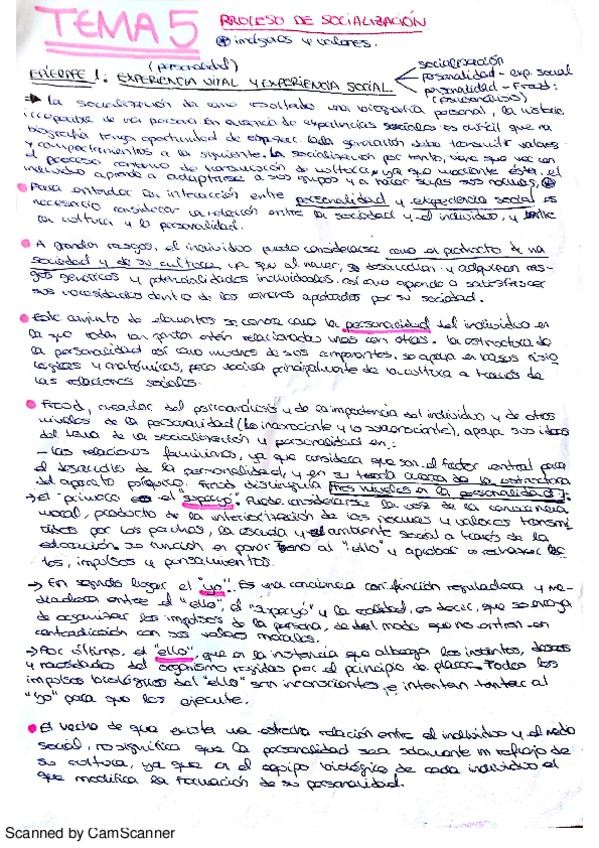 TEMA 5 PROCESO DE SOCIALIZACIÓN
y valores.
(personalidad)
EPÍGRAFE 1. EXPERIENCIA VITAL Y EXPERIENCIA SOCIAL.
socialización
personalidad - exp. social
personalidad - Freud:
(psicoanálisis)
La socialización da como resultado una biografía personal, la historia
irrepetible de una persona. En ausencia de experiencias sociales es difícil que una
biografía tenga oportunidad de Cada generación debe transmitir valores
y comportamientos a la siguiente. La socialización por tanto, tiene que ver con
el proceso continuo de transmisión de cultura, ya que mediante ésta, el
individuo aprende a adaptarse a sus grupos y a hacer suyas sus normas,
Para entender la interacción entre personalidad y experiencia social es
necesario considerar la relación entre la sociedad y el individuo, y entre
la cultura y la personalidad.
A grandes rasgos, el individuo puede considerarse como el producto de una
sociedad y de su cultura, ya que al nacer, se desarrollan y adquieren ras-
gos genéticos y potencialidades individuales. así como aprende a satisfacer
sus necesidades dentro de los aportados por su sociedad.
Este conjunto de elementos se conoce como la personalidad del individuo en
la que todas las partes están relacionadas unas con otras. La estructura de
la personalidad así como muchos de sus componentes, se apoya en bases fisio
lógicas y anatómicas, pero principalmente de la cultura a través de
las relaciones sociales.
Freud, creador del psicoanálisis y de la importancia del individuo y de otros
niveles de la personalidad (lo inconsciente y lo subconsciente), apoya sus ideas
del tema de la socialización y personalidad en:
- las relaciones familiares, ya que considera que son el factor central para
el desarrollo de la personalidad, y en su teoría acerca de la estructura
del aparato psíquico. Freud distinguía tres niveles en la personalidad:
→ el primero es el "superyó". Puede considerarse la voz de la conciencia
moral, producto de la interiorización de las normas y valores transmi
tidos por los padres, la escuela y el ambiente social a través de la
educación. su función es poner freno al "ello" y aprobar o rechazar ac
tos, impulsos y pensamientos.
→ En segundo lugar el "yo". Es una conciencia con función reguladora y me-
diadora entre el "ello", el "superyó" y la realidad, es decir, que se encarga
de organizar los impulsos de la persona, de tal modo que no entren en
contradicción con sus valores morales.
→ Por último, el "ello", que es la instancia que alberga los instintos, deseos
y necesidades del organismo regidas por el principio de placer. Todos los
impulsos biológicos del "ello" son inconscientes, e intentan tentar al
"yo" para que los ejecute.
El hecho de que exista una estrecha relación entre el individuo y el medio
social, no significa que la personalidad sea solamente un reflejo de
su cultura, ya que es el equipo biológico de cada individuo el
que modifica la formación de su personalidad.
Scanned by CamScanner